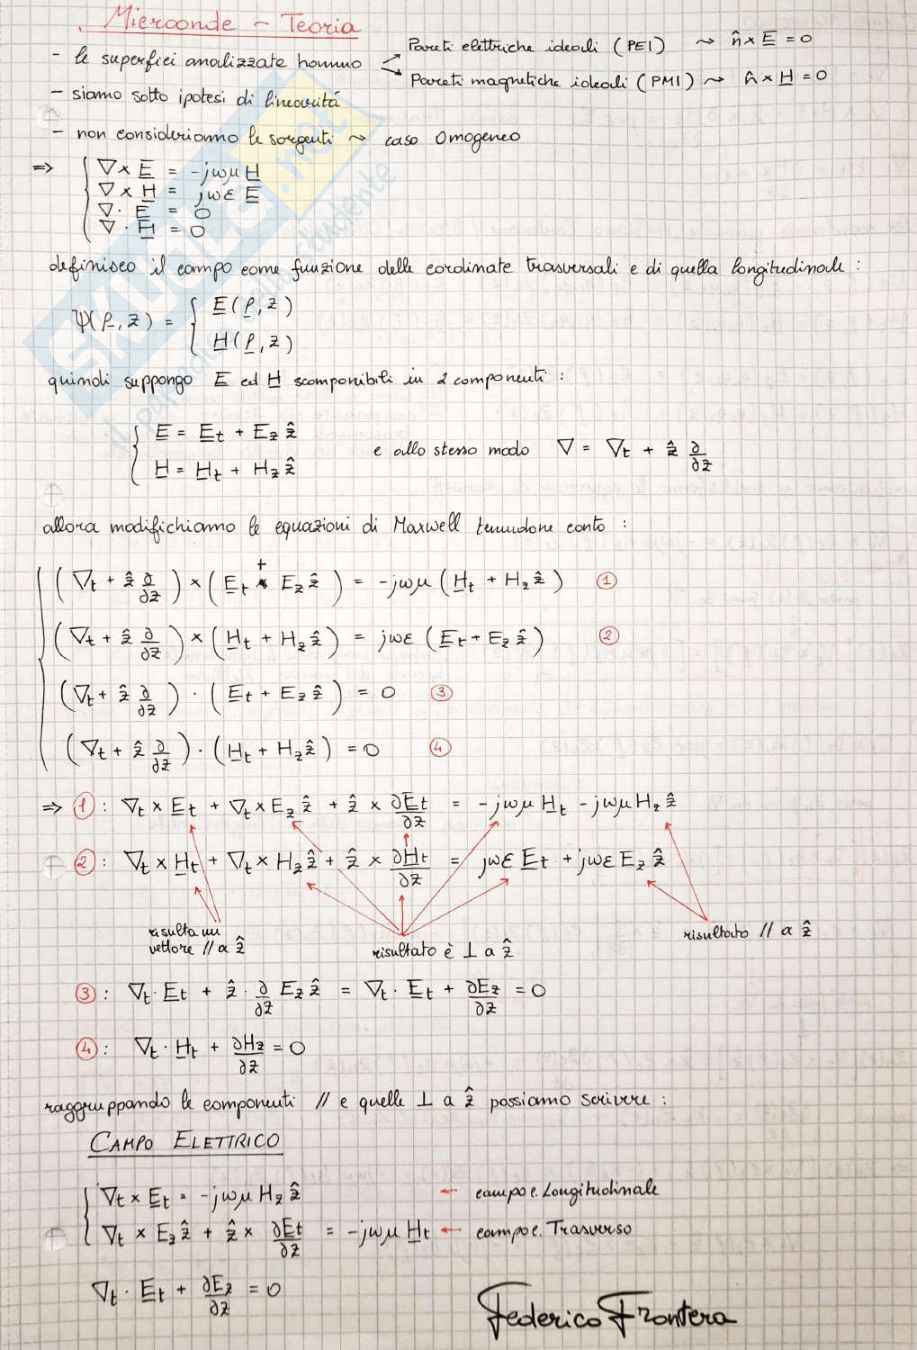 Microonde - Teoria
- le superfici analizzate hanno
Pareti elettriche ideali (PEI) ⤳ n̂ × E = 0
Pareti magnetiche ideali (PMI) ⤳ n̂ × H = 0
- siamo sotto ipotesi di linearità
- non consideriamo le sorgenti ⤳ caso Omogeneo
⇒ { ∇ × E = -jωμ H
∇ × H = jωε E
∇ · E = 0
∇ · H = 0
definisco il campo come funzione delle cordinate trasversali e di quella longitudinale :
Ψ(ρ, z) = { E(ρ, z)
H(ρ, z)
quindi suppongo E ed H scomponibili in 2 componenti :
{ E = Et + Ez ẑ
H = Ht + Hz ẑ
e allo stesso modo ∇ = ∇t + ẑ ∂/∂z
allora modifichiamo le equazioni di Maxwell tenendone conto :
(∇t + ẑ ∂/∂z) × (Et + Ez ẑ) = -jωμ (Ht + Hz ẑ) ①
(∇t + ẑ ∂/∂z) × (Ht + Hz ẑ) = jωε (Et + Ez ẑ) ②
(∇t + ẑ ∂/∂z) · (Et + Ez ẑ) = 0 ③
(∇t + ẑ ∂/∂z) · (Ht + Hz ẑ) = 0 ④
⇒ ① : ∇t × Et + ∇t × Ez ẑ + ẑ × ∂Et/∂z = -jωμ Ht - jωμ Hz ẑ
② : ∇t × Ht + ∇t × Hz ẑ + ẑ × ∂Ht/∂z = jωε Et + jωε Ez ẑ
risulta un
vettore // a ẑ
risultato è ⊥ a ẑ
risultato // a ẑ
③ : ∇t · Et + ẑ · ∂/∂z Ez ẑ = ∇t · Et + ∂Ez/∂z = 0
④ : ∇t · Ht + ∂Hz/∂z = 0
raggruppando le componenti // e quelle ⊥ a ẑ possiamo scrivere :
CAMPO ELETTRICO
{ ∇t × Et = -jωμ Hz ẑ ← campo e. Longitudinale
∇t × Ez ẑ + ẑ × ∂Et/∂z = -jωμ Ht ← campo e. Trasverso
∇t · Et + ∂Ez/∂z = 0
Federico Frontera